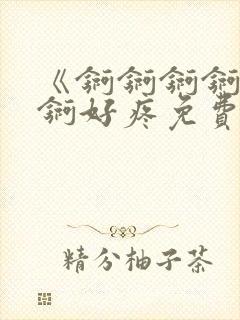 《锕锕锕锕
锕好疼免費
精分柚子茶